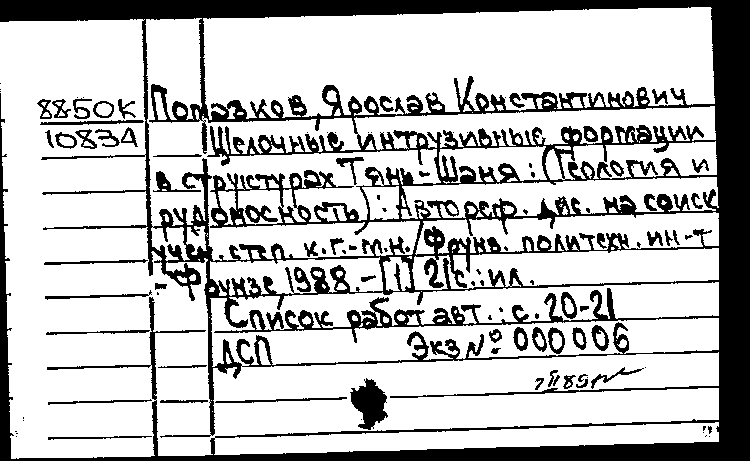 88-50К Потазков, Ярослав Константинович
10834 Щелочные интрузивные формации
в структурах Тянь-Шаня : (Геология и
рудоносность) : Автореф. дис. на соиск
учен. степ. к.г.-м.н. / Фрунз. политехн. ин-т
- Фрунзе, 1988. - [1] 21с. : ил.
Список работ авт. : с. 20-21
ДСП Экз № 000006